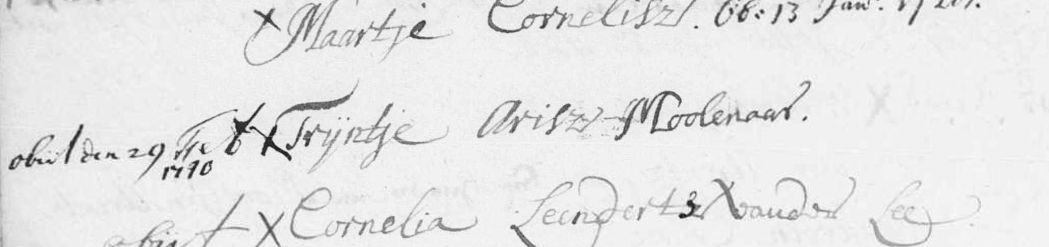 Maartje Cornelisz. Ob: 13 Jan:
obiit den 29 Feb Trijntje Arisz Moolenaar.
1710
obiit Cornelia Leenderts vander Lee